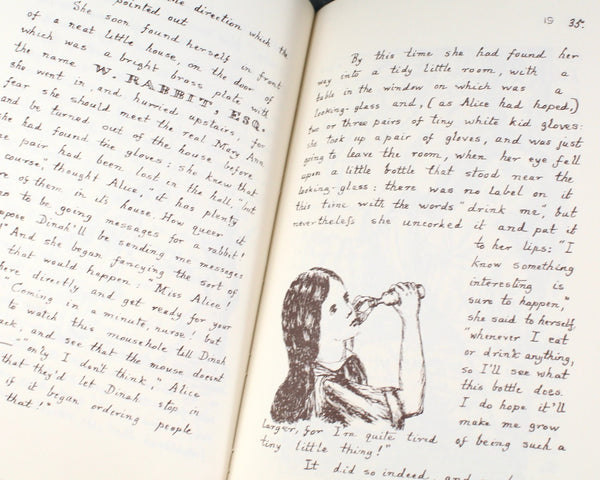 pointed out
the direction which the
She soon found herself in front
of a neat little house, on the door of
which was a bright brass plate with
the name W. RABBIT, ESQ.
she went in, and hurried upstairs, for
fear she should meet the real Mary Ann
and be turned out of the house before
she had found the gloves: she knew that
one pair had been lost in the hall, "but
course," thought Alice, "it has plenty
more of them in its house. How queer it
seems to be going messages for a rabbit!
suppose Dinah'll be sending me messages
"And she began fancying the sort of
that would happen: "Miss Alice!
here directly and get ready for your
"Coming in a minute, nurse! but
to watch this mousehole till Dinah
back, and see that the mouse doesnt
—"only I don't think," Alice
that they'd let Dinah stop in
if it began ordering people
that!"
19 35.
By this time she had found her
way into a tidy little room, with a
table in the window on which was a
looking-glass and, (as Alice had hoped,)
two or three pairs of tiny white kid gloves:
she took up a pair of gloves, and was just
going to leave the room, when her eye fell
upon a little bottle that stood near the
looking-glass: there was no label on it
this time with the words "drink me," but
nevertheless she uncorked it and put it
to her lips: "I
know something
interesting is
sure to happen,"
she said to herself,
"whenever I eat
or drink anything,
so I'll see what
this bottle does.
I do hope it'll
make me grow
larger, for I'm quite tired of being such a
tiny little thing!"
It did so indeed, and